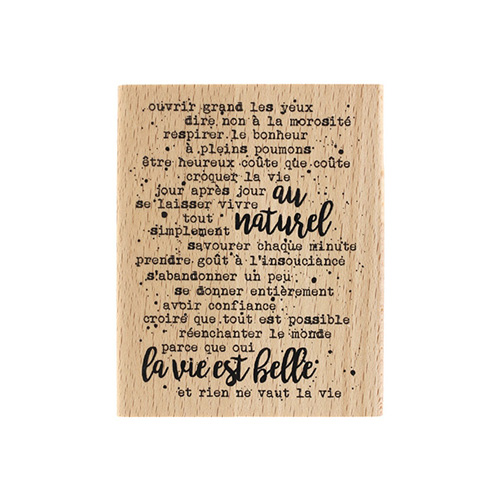 ouvrir grand les yeux
dire non à la morosité
respirer le bonheur
à pleins poumons
être heureux coûte que coûte
croquer la vie
jour après jour
se laisser vivre
au naturel
tout
simplement
savourer chaque minute
prendre goût à l'insouciance
s'abandonner un peu
se donner entièrement
avoir confiance
croire que tout est possible
réenchanter le monde
parce que oui
la vie est belle
et rien ne vaut la vie